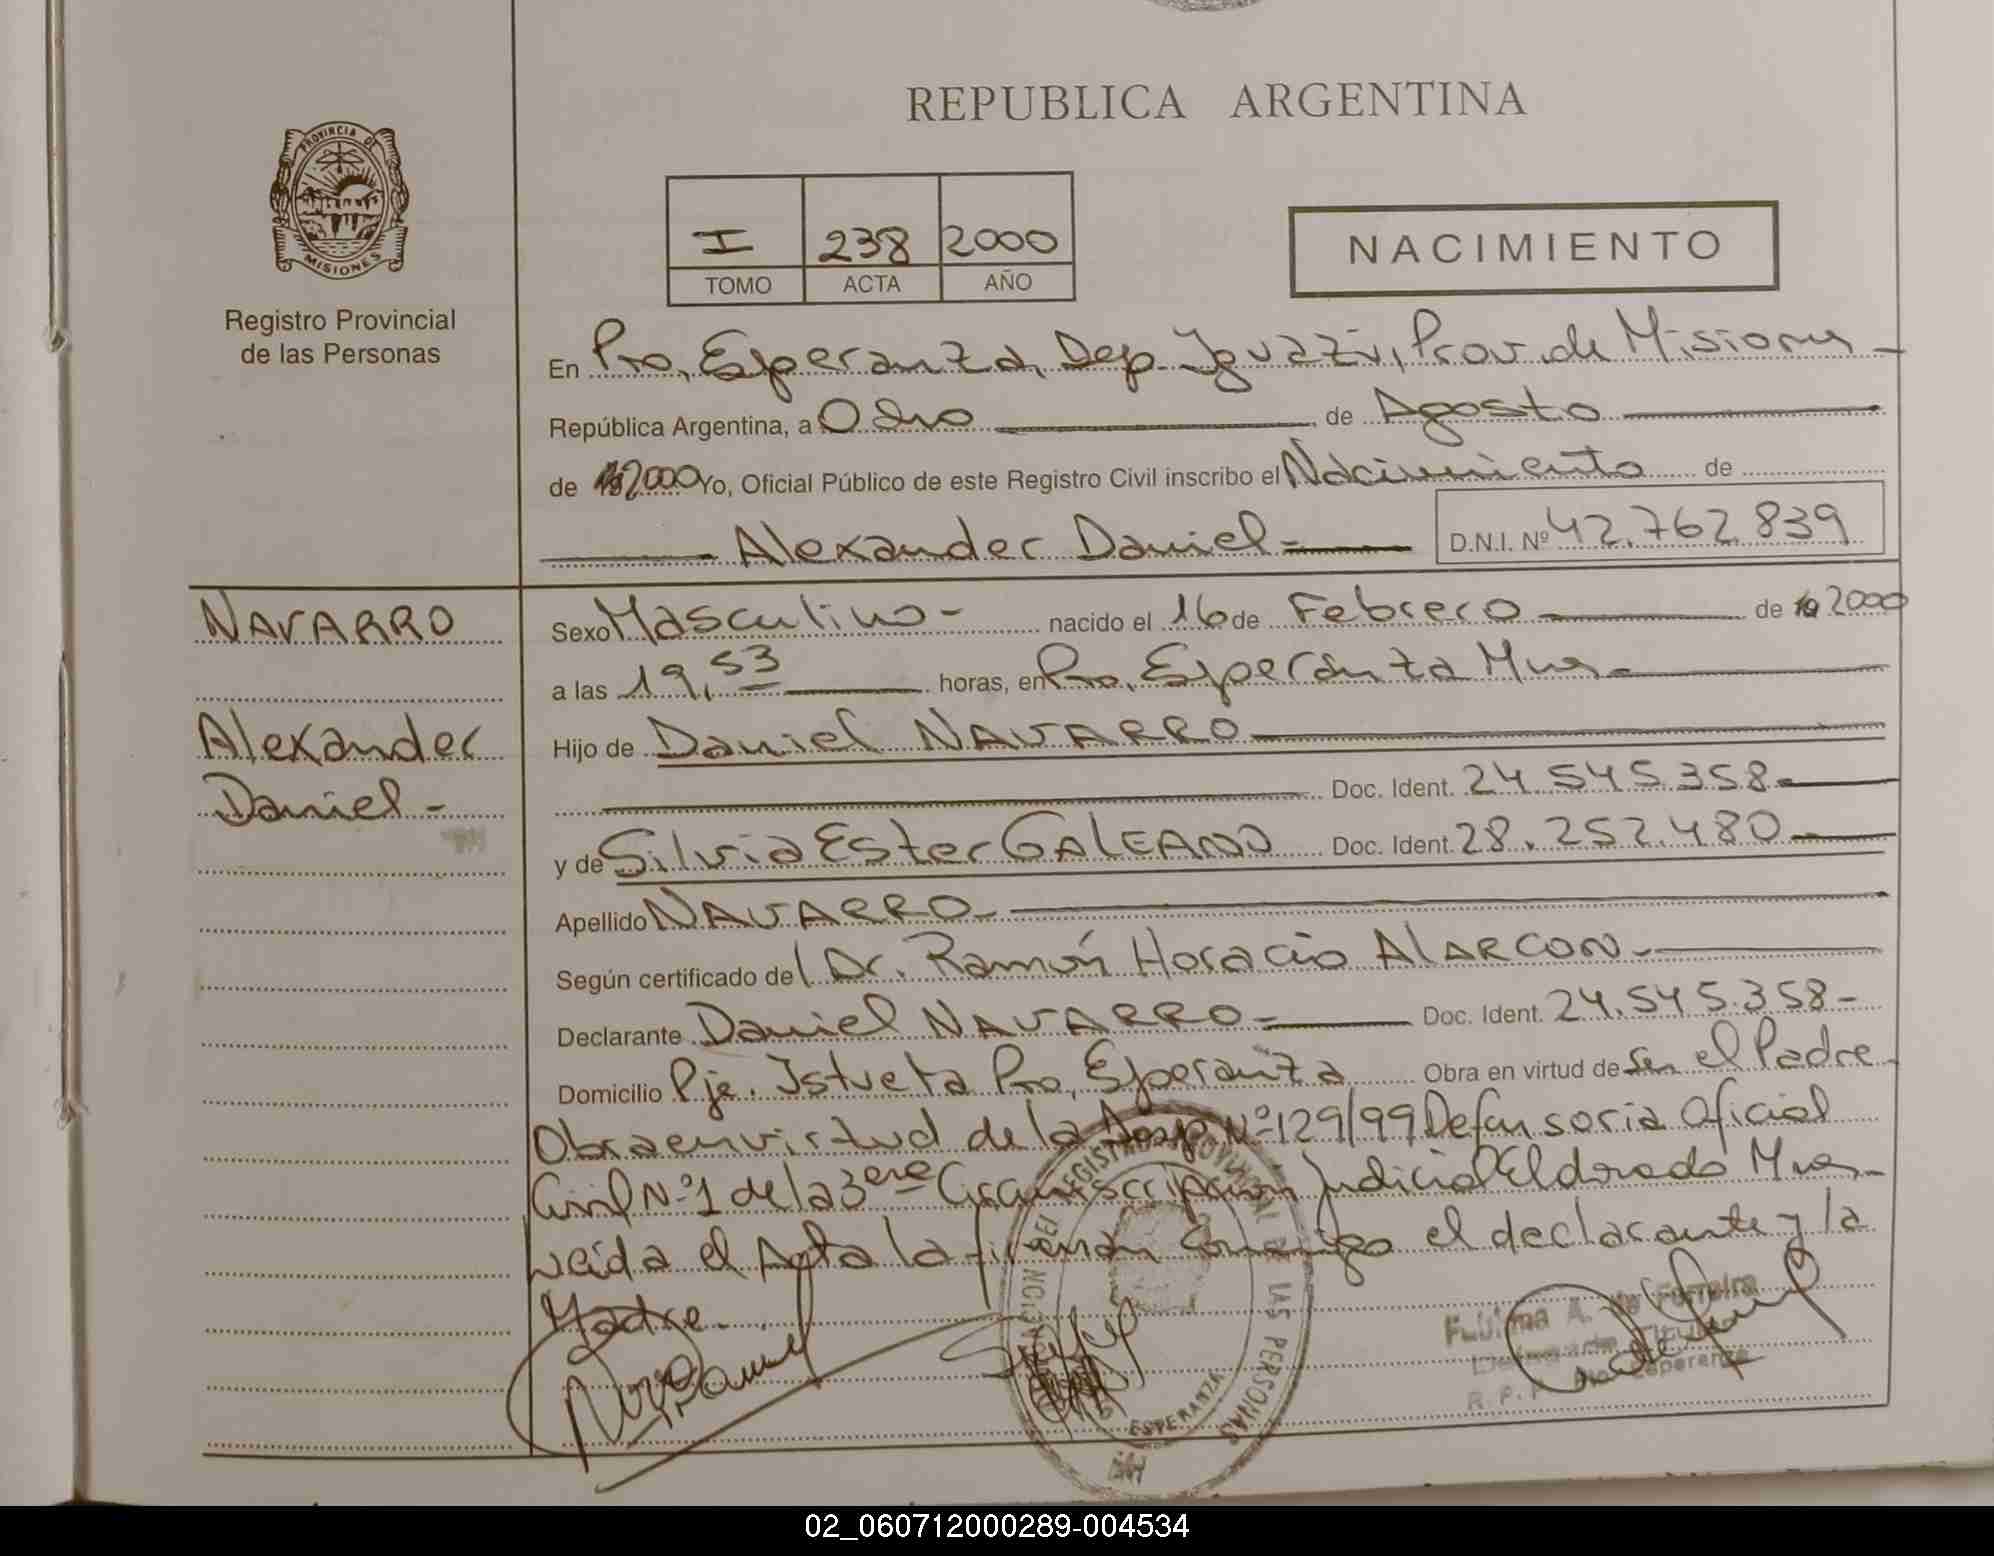 REPUBLICA ARGENTINA
PROVINCIA DE
MISIONES
Registro Provincial
de las Personas
I 238 2000
TOMO ACTA AÑO
NACIMIENTO
En Pto. Esperanza, Dep. Iguazú, Prov. de Misiones -
República Argentina, a Ocho de Agosto
de 2000 Yo, Oficial Público de este Registro Civil inscribo el Nacimiento de
Alexander Daniel - D.N.I. Nº 42.762.839
NAVARRO
Alexander
Daniel -
Sexo Masculino - nacido el 16 de Febrero de 2000
a las 19,53 horas, en Pto. Esperanza Mnes.
Hijo de Daniel NAVARRO
Doc. Ident. 24.545.358-
y de Silvia Ester GALEANO Doc. Ident. 28.252.480-
Apellido NAVARRO
Según certificado del Dr. Ramón Horacio ALARCON.
Declarante Daniel NAVARRO - Doc. Ident. 24.545.358-
Domicilio Pje. Istueta Pto. Esperanza Obra en virtud de ser el Padre
Obra en virtud de la Disp Nº 129/99 Defensoria Oficial
Civil Nº 1 de la 3era Circunscripción Judicial Eldorado Mnes.
Leida el Acta la firman conmigo el declarante y la
Madre.
REGISTRO PROVINCIAL DE LAS PERSONAS
ESPERANZA
A. de Ferreira
Titular
R. P. P. Pto. Esperanza
02_060712000289-004534